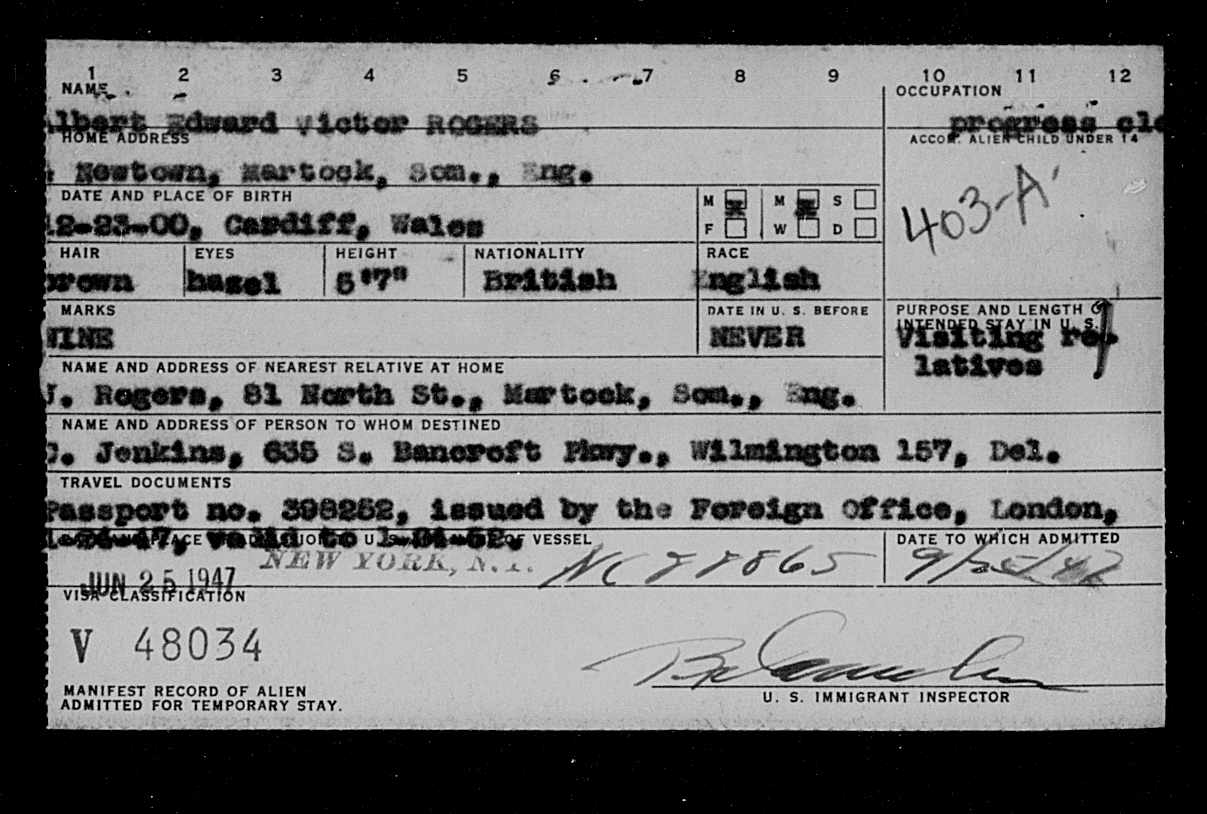 1 2 3 4 5 6 7 8 9 10 11 12
NAME OCCUPATION
lbert Edward Victor ROGERS progress cle
HOME ADDRESS ACCOM. ALIEN CHILD UNDER 14
Newtown, Martock, Som., Eng.
403-A
DATE AND PLACE OF BIRTH M M S
12-23-00, Cardiff, Wales F W D
HAIR EYES HEIGHT NATIONALITY RACE
brown hazel 5'7" British English
MARKS DATE IN U. S. BEFORE PURPOSE AND LENGTH OF
INTENDED STAY IN U. S.
NINE NEVER Visiting re-
latives
NAME AND ADDRESS OF NEAREST RELATIVE AT HOME
J. Rogers, 81 North St., Martock, Som., Eng.
NAME AND ADDRESS OF PERSON TO WHOM DESTINED
Jenkins, 635 S. Bancroft Pkwy., Wilmington 157, Del.
TRAVEL DOCUMENTS
Passport no. 398252, issued by the Foreign Office, London,
valid to
PLACE U. OF VESSEL DATE TO WHICH ADMITTED
JUN 25 1947 NEW YORK, N.Y. NC 88865
VISA CLASSIFICATION
V 48034
MANIFEST RECORD OF ALIEN
ADMITTED FOR TEMPORARY STAY.
U. S. IMMIGRANT INSPECTOR